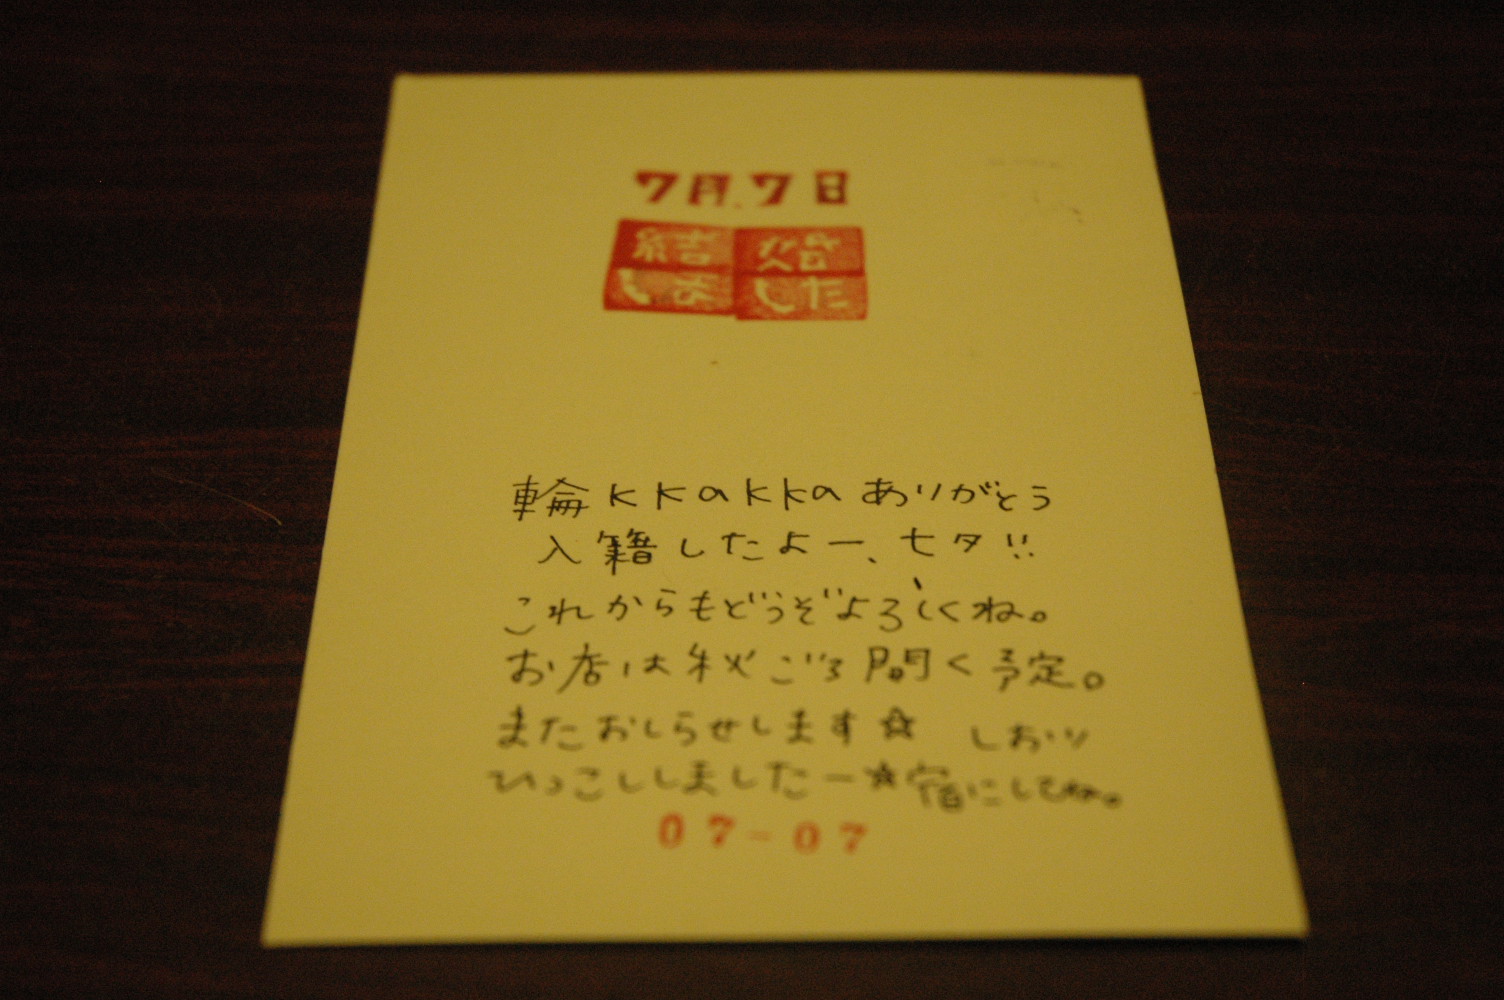 7月.7日
結婚
しました
輪KKaKKaありがとう
入籍したよー、七夕!!
これからもどうぞよろしくね。
お店は秋ごろ開く予定。
またおしらせします☆ しおり
ひっこししましたー☆宿にしてね。
07-07